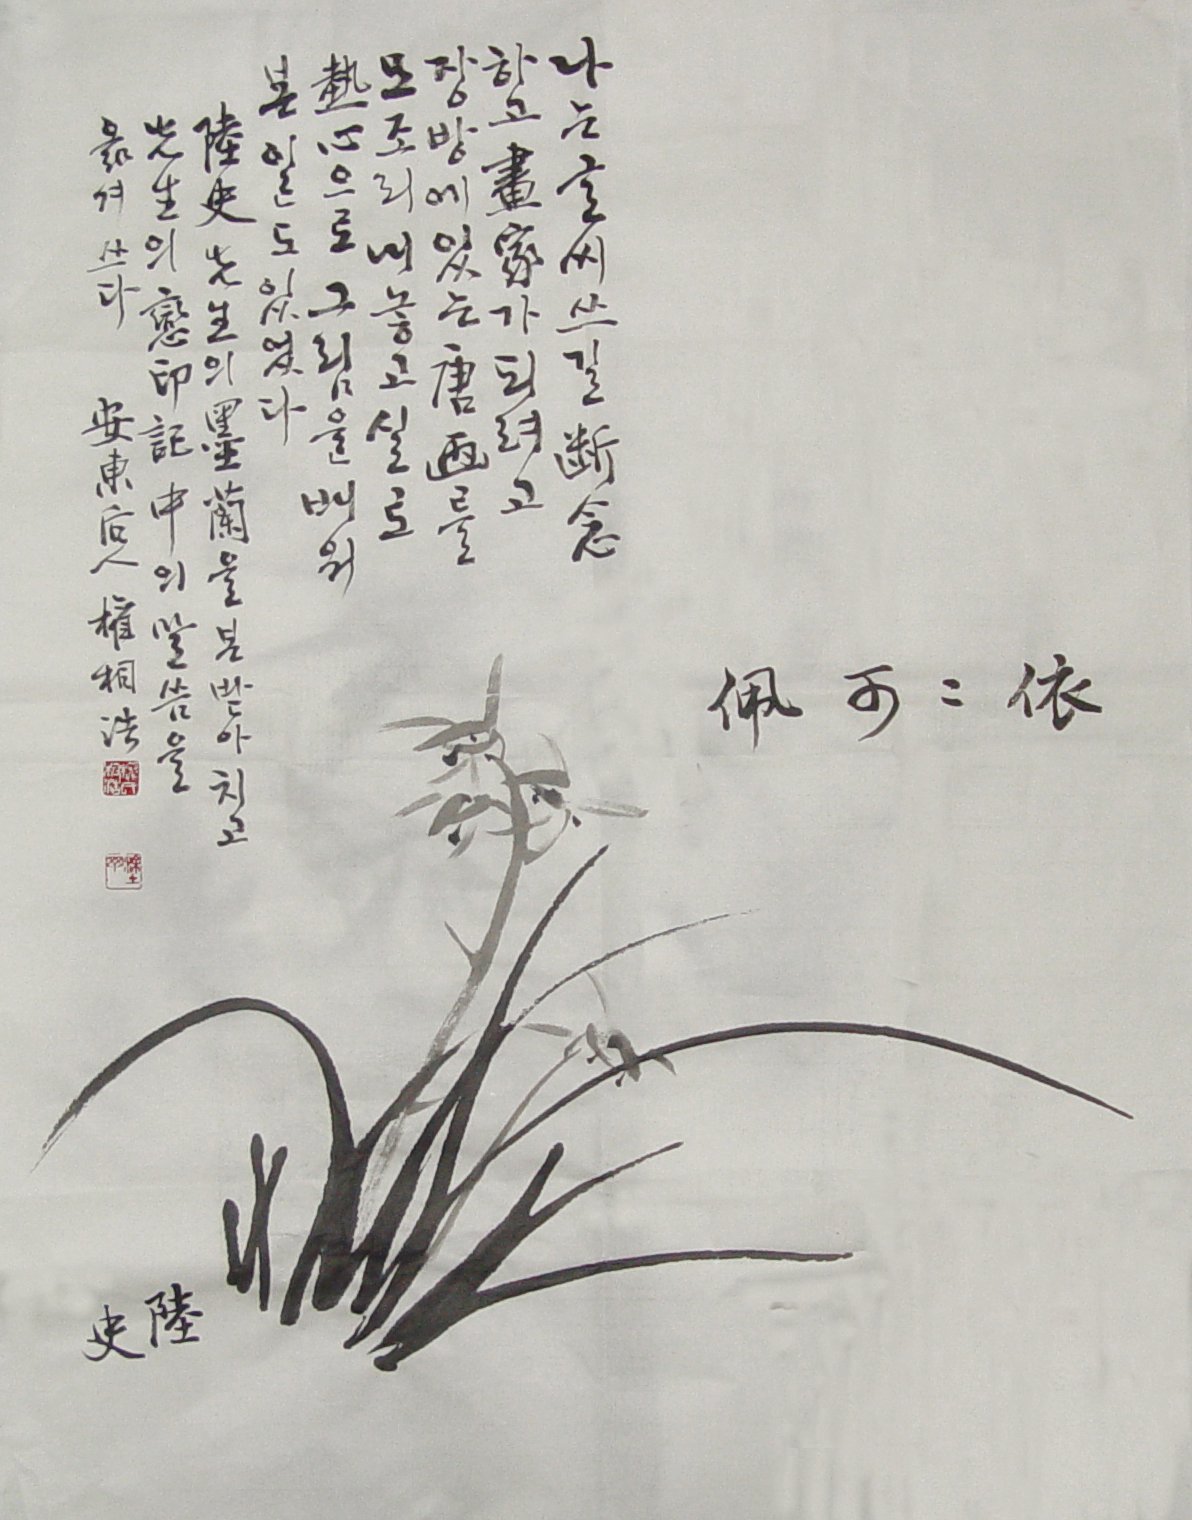 나는 글씨 쓰길 斷念
하고 畫家가 되려고
장방에 있는 唐画를
모조리 내놓고 실로
熱心으로 그림을 배워
본 일도 있었다
陸史 先生의 墨蘭을 본받아 치고
先生의 戀印記 中의 말씀을
옮겨 쓰다 安東后人 權相浩
依〻可佩
陸史